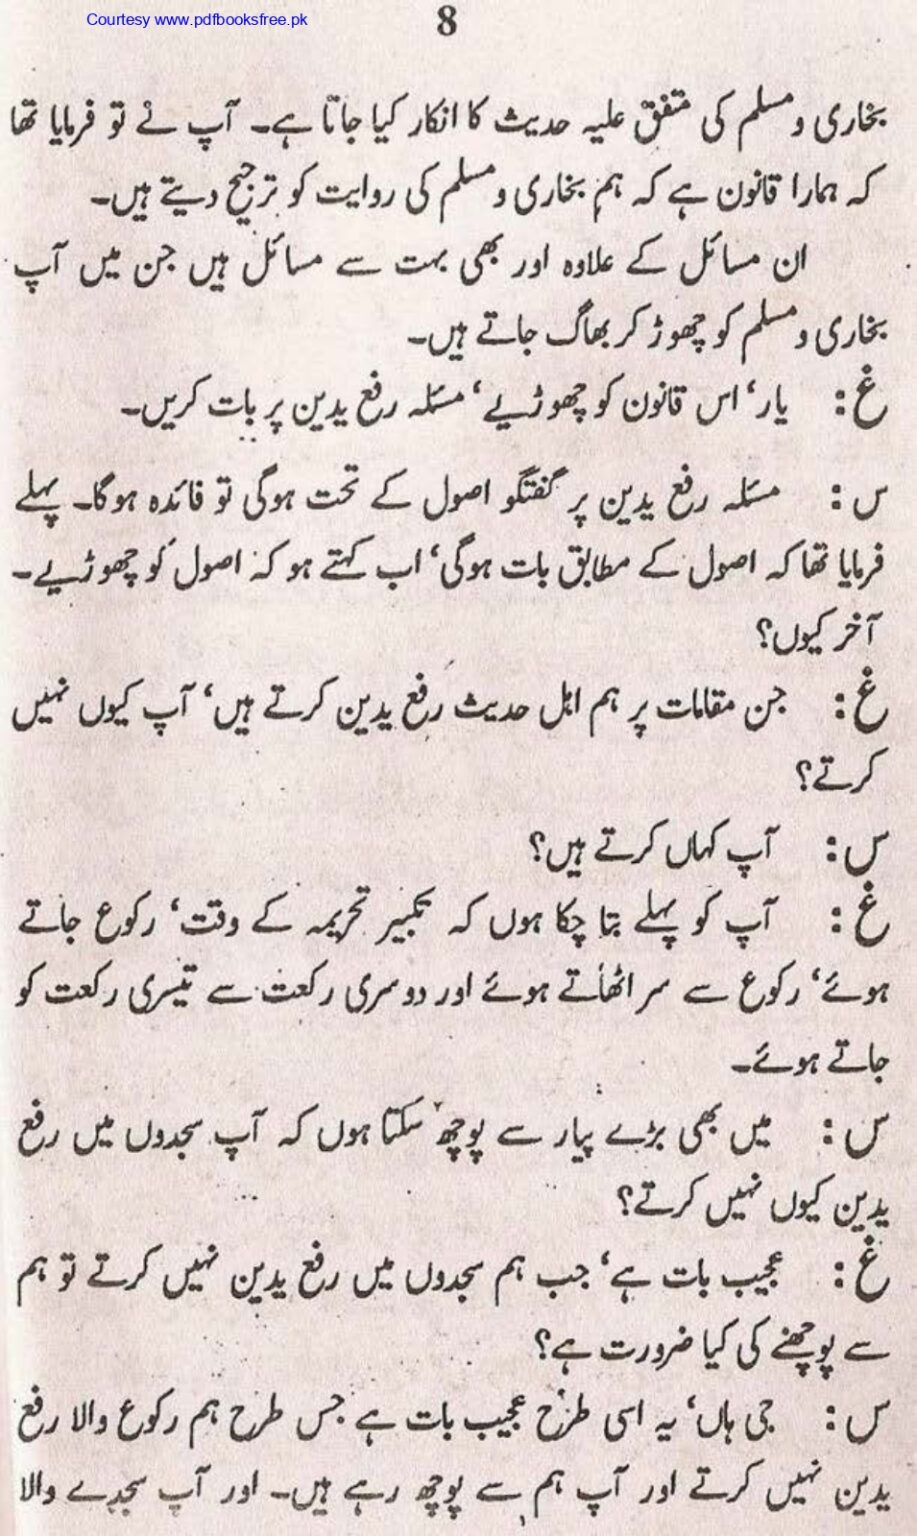 Courtesy www.pdfbooksfree.pk
8
بخاری و مسلم کی متفق علیہ حدیث کا انکار کیا جاتا ہے۔ آپ نے تو فرمایا تھا
کہ ہمارا قانون ہے کہ ہم بخاری و مسلم کی روایت کو ترجیح دیتے ہیں۔
ان مسائل کے علاوہ اور بھی بہت سے مسائل ہیں جن میں آپ
بخاری و مسلم کو چھوڑ کر بھاگ جاتے ہیں۔
غ: یار، اس قانون کو چھوڑیے، مسئلہ رفع یدین پر بات کریں۔
س: مسئلہ رفع یدین پر گفتگو اصول کے تحت ہوگی تو فائدہ ہوگا۔ پہلے
فرمایا تھا کہ اصول کے مطابق بات ہوگی، اب کہتے ہو کہ اصول کو چھوڑیے۔
آخر کیوں؟
غ: جن مقامات پر ہم اہل حدیث رفع یدین کرتے ہیں، آپ کیوں نہیں
کرتے؟
س: آپ کہاں کرتے ہیں؟
غ: آپ کو پہلے بتا چکا ہوں کہ تکبیر تحریمہ کے وقت، رکوع جاتے
ہوئے، رکوع سے سر اٹھاتے ہوئے اور دوسری رکعت سے تیسری رکعت کو
جاتے ہوئے۔
س: میں بھی بڑے پیار سے پوچھ سکتا ہوں کہ آپ سجدوں میں رفع
یدین کیوں نہیں کرتے؟
غ: عجیب بات ہے، جب ہم سجدوں میں رفع یدین نہیں کرتے تو ہم
سے پوچھنے کی کیا ضرورت ہے؟
س: جی ہاں، یہ اسی طرح عجیب بات ہے جس طرح ہم رکوع والا رفع
یدین نہیں کرتے اور آپ ہم سے پوچھ رہے ہیں۔ اور آپ سجدے والا